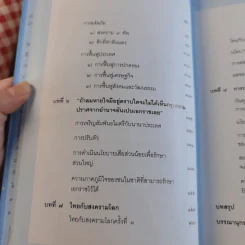 การผลัดดิน
๑) สงคราม ๙ ทัพ
๒) ศึกที่ท่าดินแดง
การฟื้นฟูประเทศ
๑) การฟื้นฟูการปกครอง
๒) การฟื้นฟูเศรษฐกิจ
๓) การฟื้นฟูสังคมและวัฒนธรรม
บทที่ ๖ "ถ้าลมหายใจมีอยู่ตราบใดจะไม่ได้เห็นกรุง
ปราศจากอำนาจอันเปนเอกราชเลย"
การเจริญสัมพันธไมตรีกับนานาประเทศ
การปรับตัว
การดำเนินนโยบายเสียส่วนน้อยเพื่อรักษา
ส่วนใหญ่
ความภาคภูมิใจของชนในชาติที่สามารถรักษา
เอกราชไว้ได้
บทที่ ๗ ไทยกับสงครามโลก
ไทยกับสงครามโลกครั้งที่ ๑
บทสรุป
บรรณานุกรม